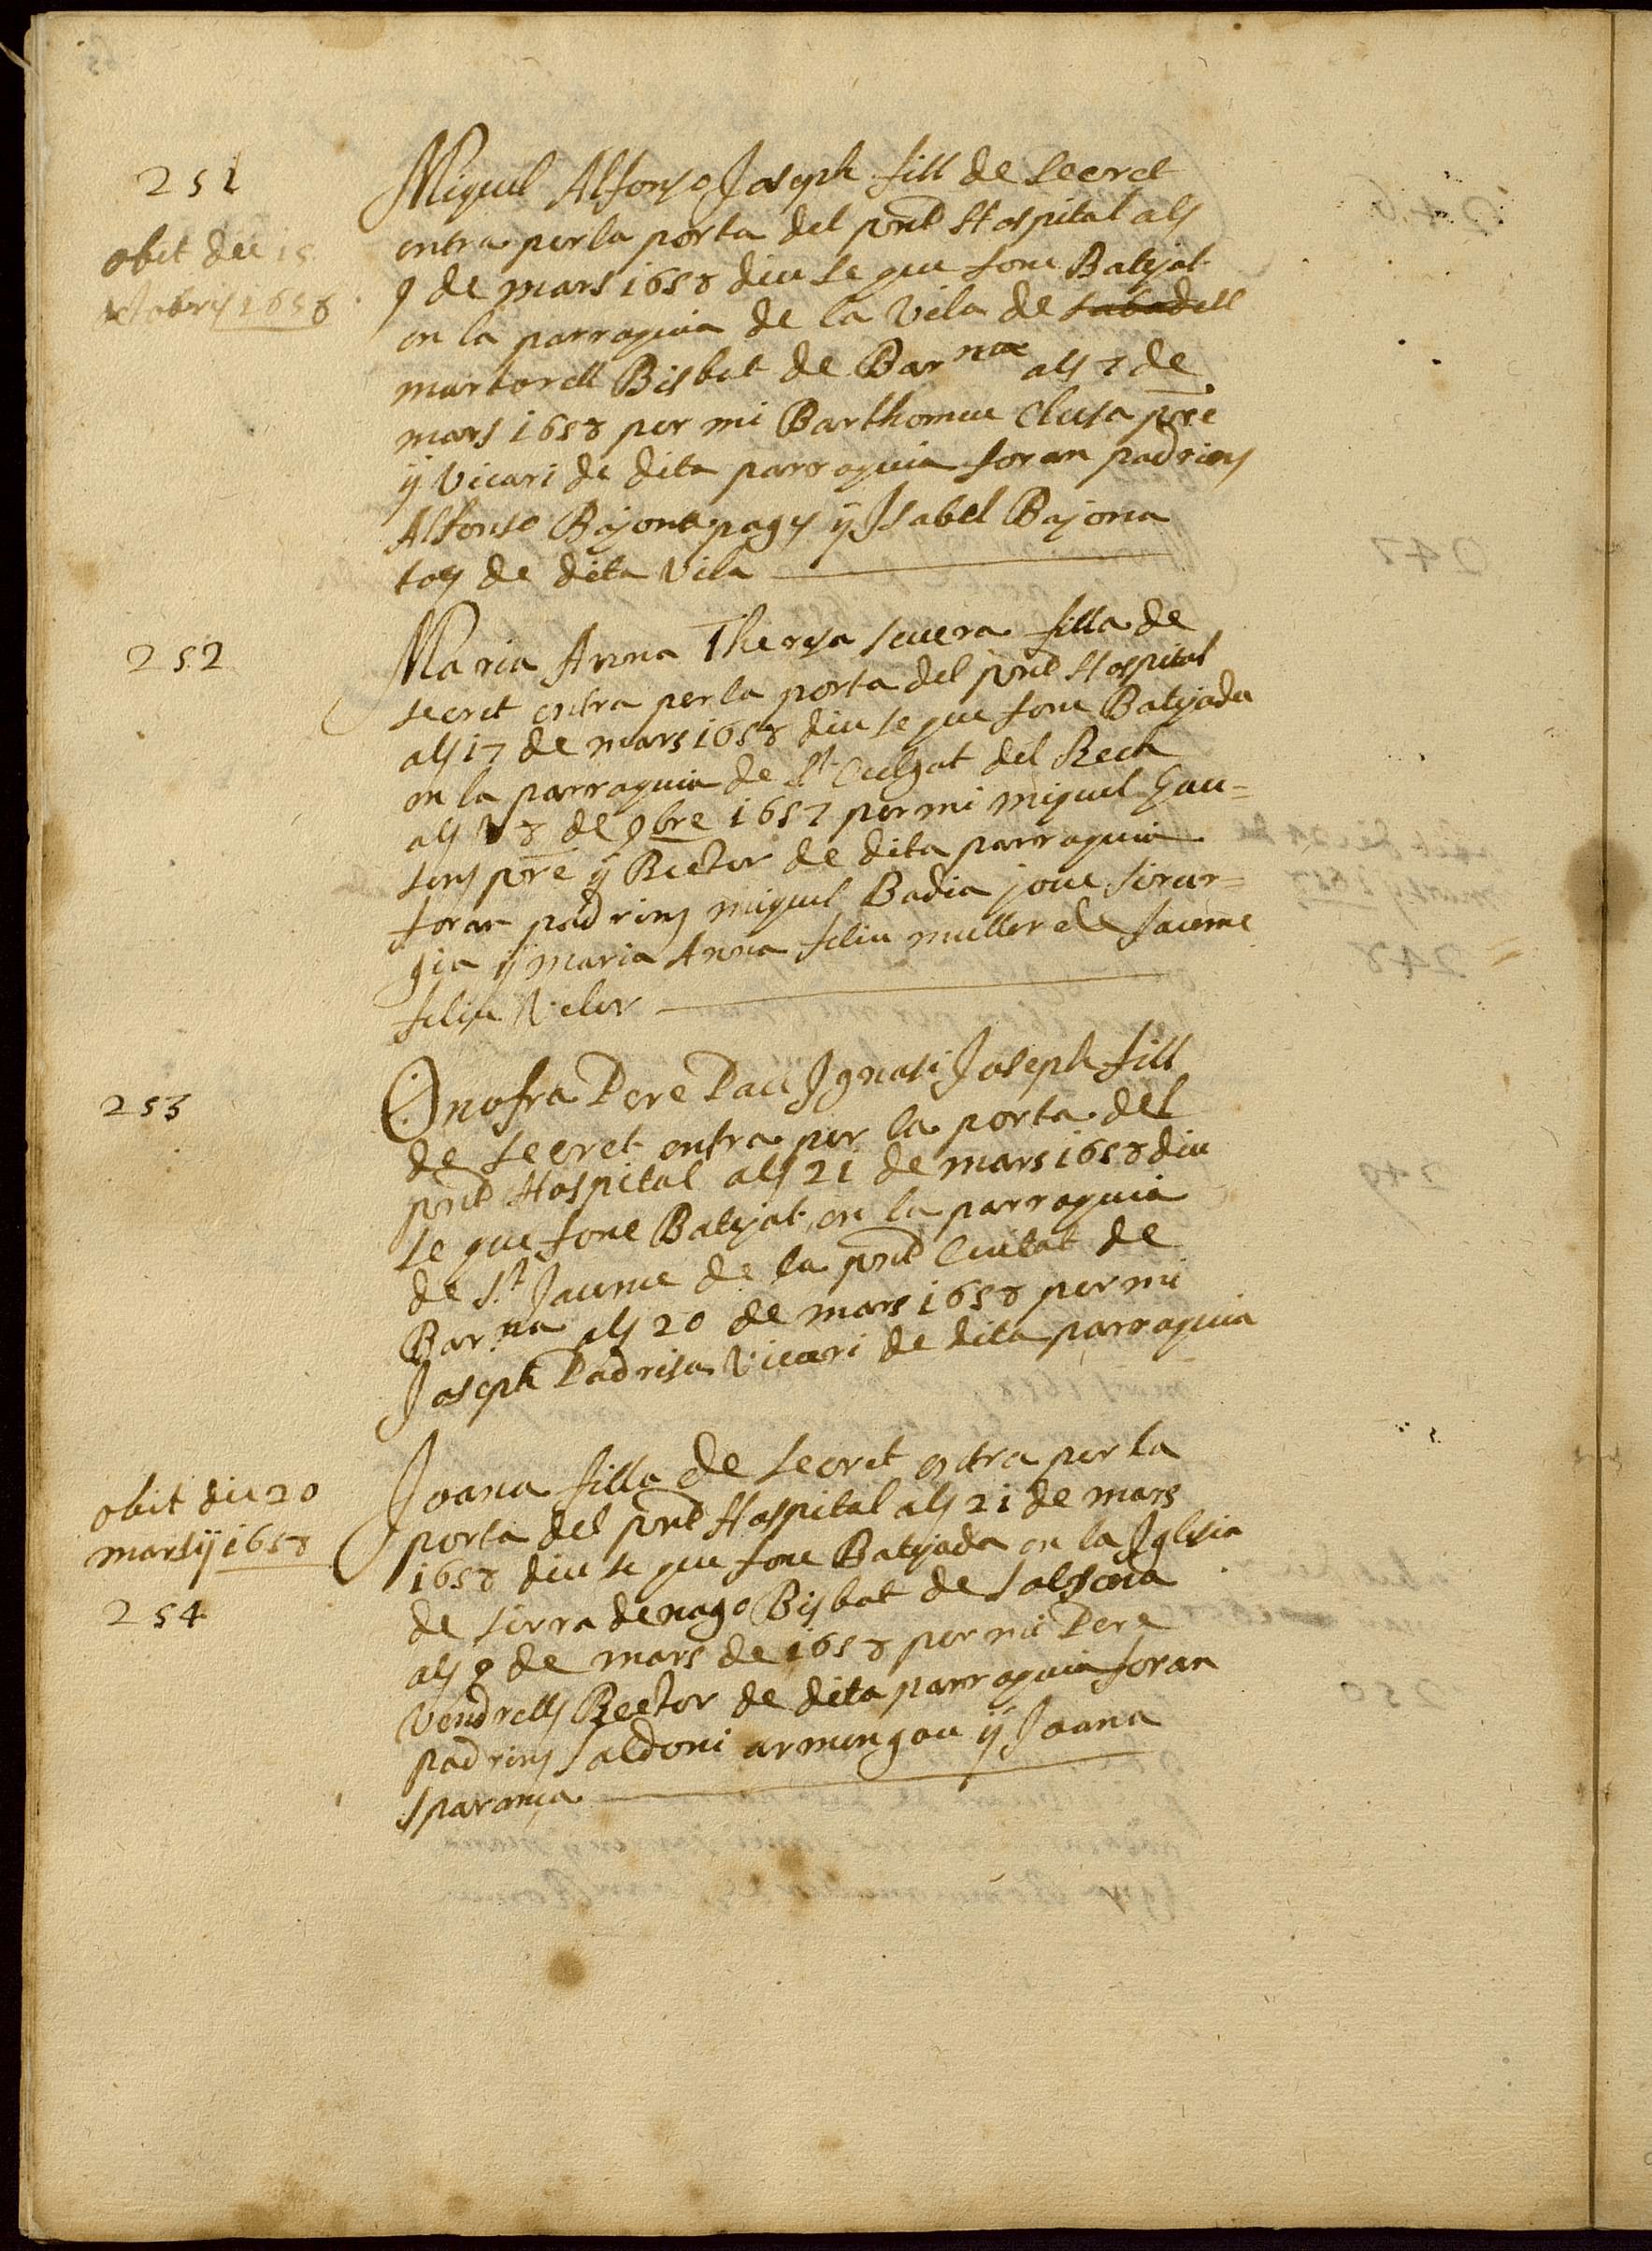 251
obit die 15
octobris 1658
Miquel Alfonso Joseph fill de secret
entra per la porta del pnt Hospital als
9 de mars 1658 diu se que fonc Batejat
en la parroquia de la vila de sabadell
martorell Bisbat de Barna als 7 de
mars 1658 per mi Barthomeu Clusa pre
ÿ Vicari de dita parroquia foran padrins
Alfonso Bajona pages ÿ Isabel Bajona
tos de dita vila
252
Maria Anna Theresa severa filla de
secret entra per la porta del pnt Hospital
als 17 de mars 1658 diu se que fonc Batejada
en la parroquia de St Culgat del Rech
als 8 de 9bre 1657 per mi miquel Gau=
sens pre ÿ Rector de dita parroquia
foran padrins miquel Badia jove sirur=
gia ÿ maria Anna feliu muller de Jaume
feliu Veler
253
Onofra Pere Pau Ignasi Joseph fill
de secret entra per la porta del
pnt Hospital als 21 de mars 1658 diu
se que fonc Batejat en la parroquia
de St Jaume de la pnt Ciutat de
Barna als 20 de mars 1658 per mi
Joseph Padrisa Vicari de dita parroquia
obit die 20
marsÿ 1658
254
Joana filla de secret entra per la
porta del pnt Hospital als 21 de mars
1658 diu se que fonc Batejada en la Iglesia
de sorra denago Bisbat de Solsona
als 9 de mars de 1658 per mi Pere
Vendrells Rector de dita parroquia foran
padrins Saldoni armengou ÿ Joana